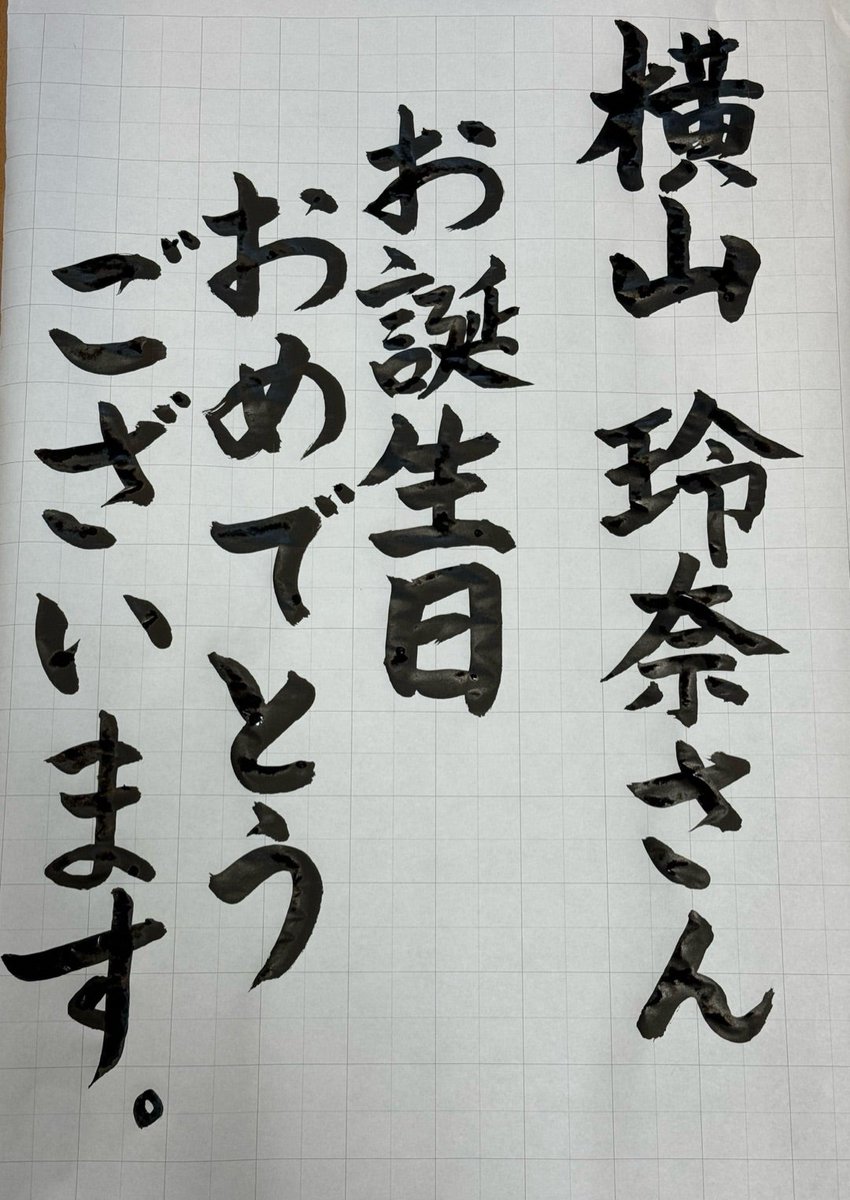 横山 玲奈さん
お誕生日
おめでとう
ございます。